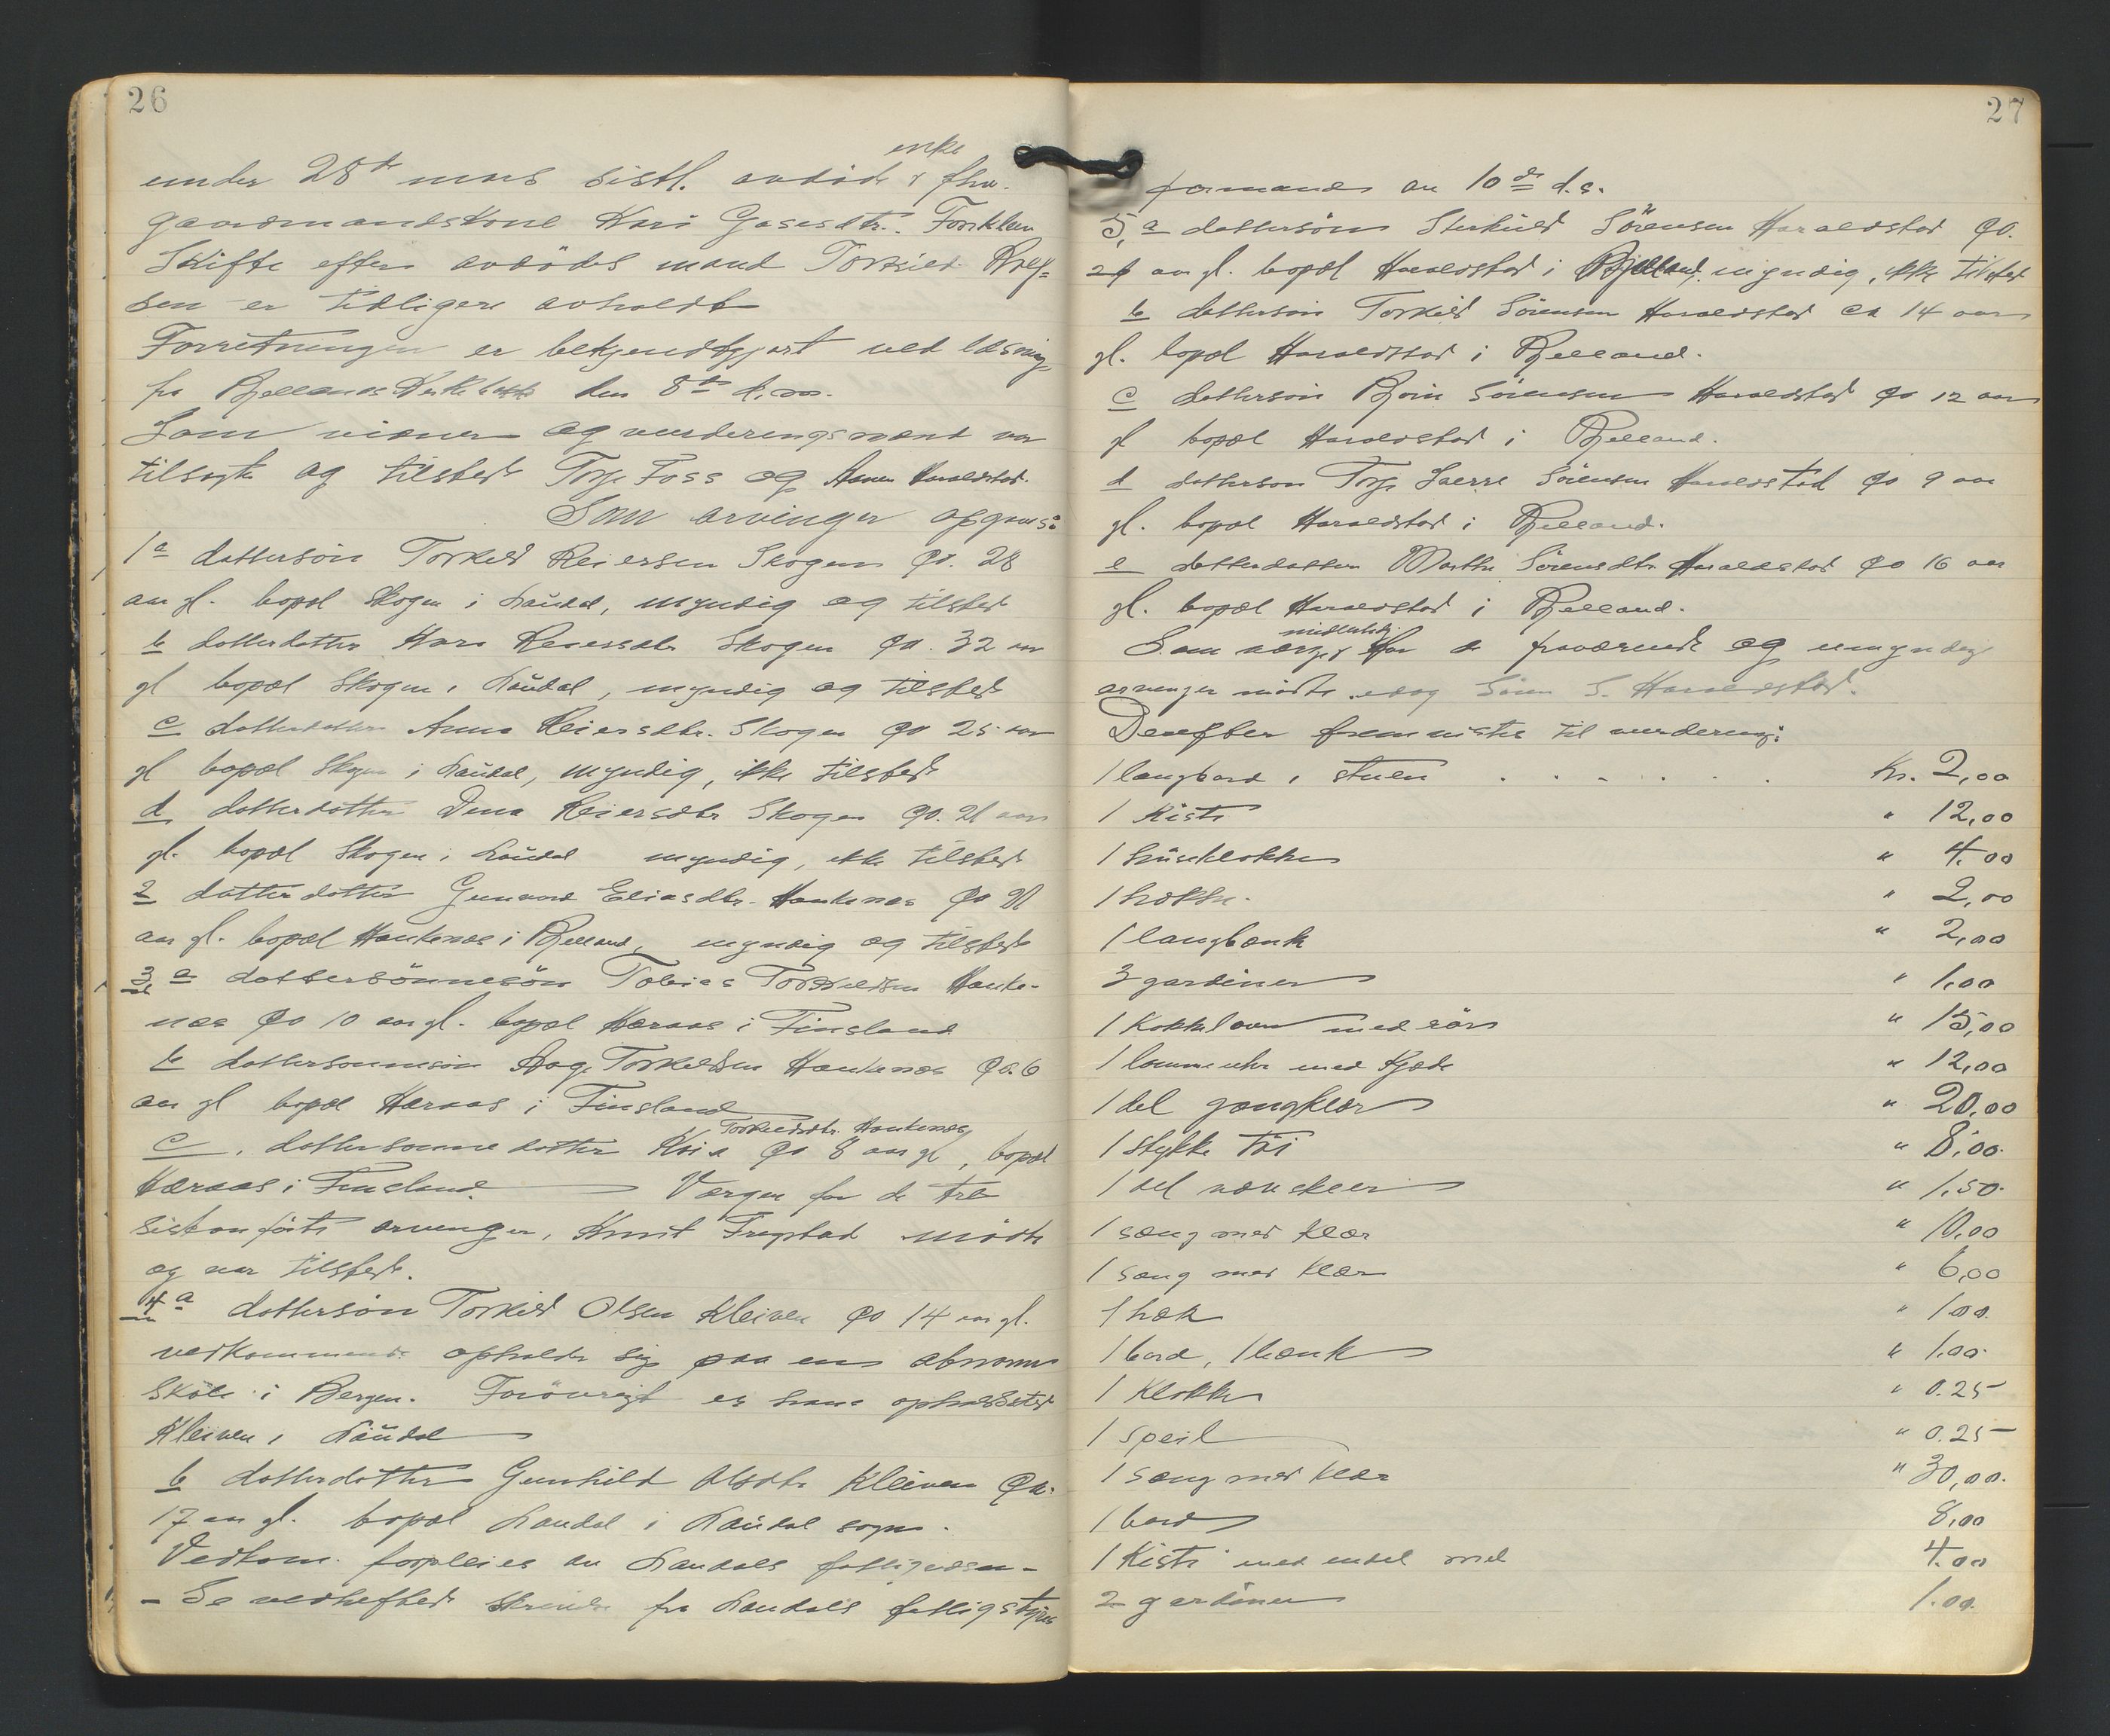 26
enke
under 28de mars sistl. avdöde fhv.
gaardmandskone Kari Gasesdtr.
Skifte efter avdödes mand Torkild
sen er tidligere avholdt
Forretningen er bekjendtgjort ved læsning
fra Bjellands Kirkebakke den 8de d.m.
Som vidner og vurderingsmænd var
tilsagte og tilstede Torje Foss og Haraldstad.
Som arvinger opgaves:
1a dattersön Torkild Reiersen Skogen ca. 28
aar gl. bopæl Skogen i Laudal, myndig og tilstede
b datterdatter Reiersdtr Skogen ca. 32 aar
gl bopæl Skogen i Laudal, myndig og tilstede
c datterdatter Anna Reiersdtr. Skogen ca 25 aar
gl bopæl Skogen i Laudal, myndig, ikke tilstede
d datterdatter Reiersdtr Skogen ca. 21 aar
gl. bopæl Skogen i Laudal myndig, ikke tilstede
2 datterdatter Gunvord Eliasdtr. Haukenæs ca 21
aar gl. bopæl Haukenæs i Bjelland, myndig og tilstede
3 a dattersönnesön Tobias Torkildsen Hauke-
næs ca 10 aar gl. bopæl i Finsland
b dattersönnesön Aage Torkildsen Haukenæs ca. 6
aar gl bopæl i Finsland
Torkildsdtr. Haukenæs
c. dattersönnedatter ca 8 aar gl, bopæl
i Finsland. Værgen for de tre
sistanförte arvinger, Knut mödte
og var tilstede.
4 a dattersön Torkild Olsen Kleiven ca 14 aar gl.
vedkommende opholder sig paa en abnorm
skole i Bergen. Forövrigt er hans opholdssted
Kleiven i Laudal
b datterdatter Gunhild Olsdtr Kleiven ca.
17 aar gl. bopæl Laudal i Laudal sogn.
Vedkom. forpleies av Laudals fattigvæsen -
- Se vedheftede skrivelse fra Laudals fattigstyres
27
formand av 10de d.s.
5, a dattersön Sterkuld Sörensen Haraldstad ca.
24 aar gl. bopæl Haraldstad i Bjelland, myndig, ikke tilsted
b dattersön Torkild Sörensen Haraldstad ca 14 aar
gl. bopæl Haraldstad i Bjelland.
c dattersön Sörensen Haraldstad ca 12 aar
gl bopæl Haraldstad i Bjelland.
d dattersön Torje Sverre Sörensen Haraldstad ca 9 aar
gl. bopæl Haraldstad i Bjelland.
e datterdatter Marthe Sörensdtr Haraldstad ca 16 aar
gl. bopæl Haraldstad i Bjelland.
midlertidig
Som værge for de fraværende og umyndige
arvinger mödte idag Sören S. Haraldstad.
Derefter fremvistes til vurdering:
1 langbord i stuen . . . . . . Kr. 2,00
1 Kiste " 12,00
1 husklokke " 4.00
1 hrokke. " 2,00
1 langbænk " 2,00
3 gardiner " 1,00
1 Kokkelovn med rör " 15,00
1 lommeuhr med Kjæde " 12,00
1 del gangklær " 20,00
1 stykke töi " 8,00.
1 del " 1,50.
1 sæng med klær " 10,00
1 sæng med klær " 6,00
1 " 1.00.
1 bord, 1 bænk " 1.00.
1 Klokke " 0.25
1 speil " 0.25
1 sæng med klær " 30,00.
1 bord 8,00
1 Kiste med endel 4.00
2 gardiner 1.00.